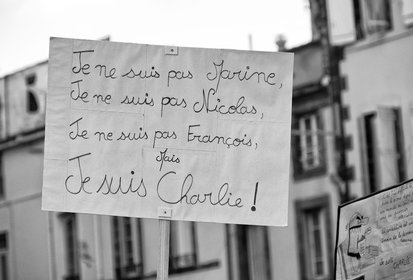 Je ne suis pas Marine,
Je ne suis pas Nicolas,
Je ne suis pas François,
Mais
Je suis Charlie !